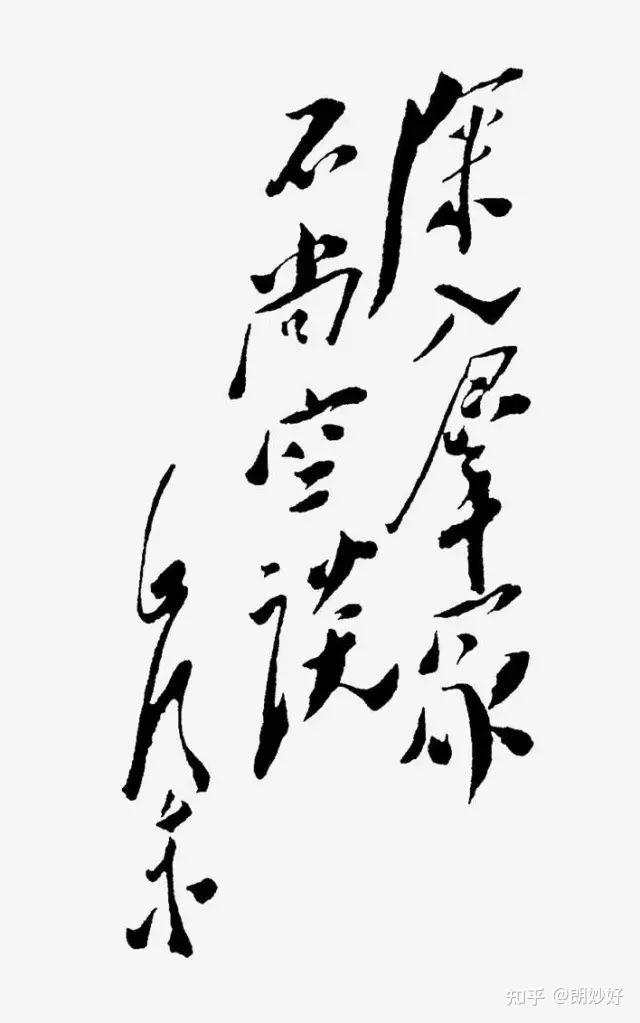 深入羣众
不尚空谈
毛泽东
知乎 @朗妙好